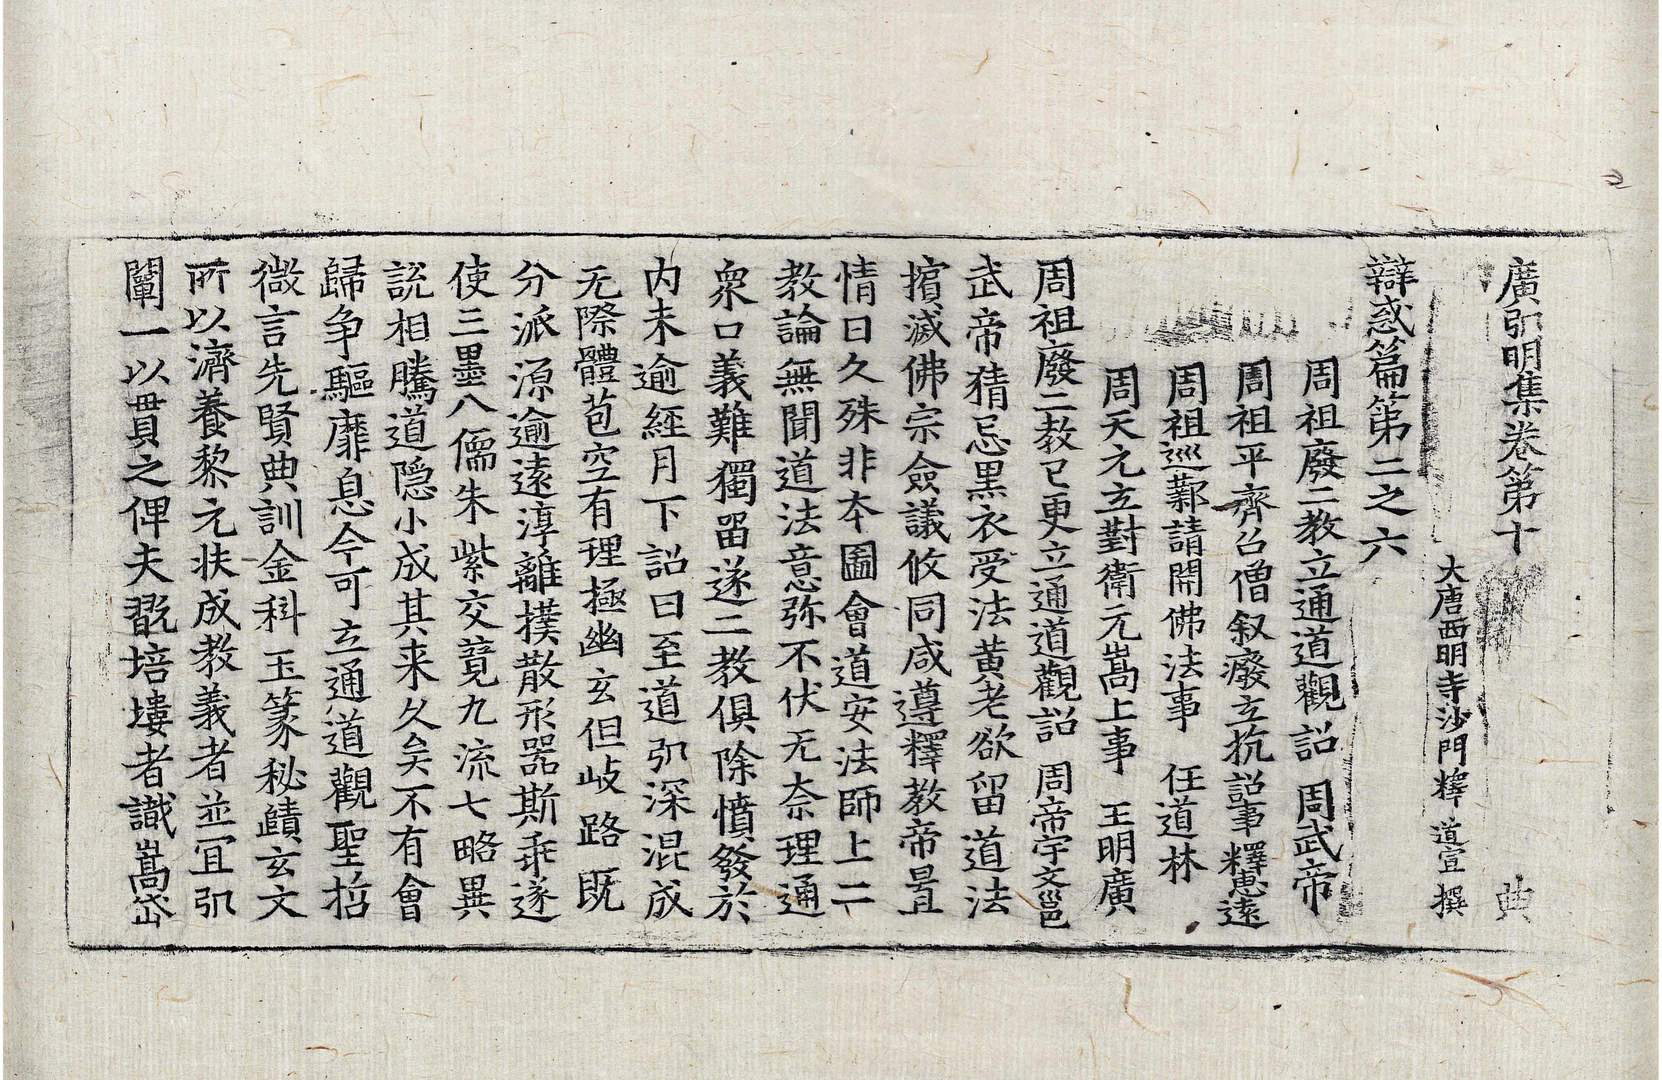 廣弘明集卷第十 典
大唐西明寺沙門釋 道宣 撰
辯惑篇第二之六
周祖廢二教立通道觀詔 周武帝
周祖平齊召僧叙癈立抗詔事釋惠遠
周祖巡鄴請開佛法事 任道林
周天元立對衛元嵩上事 王明廣
周祖廢二教已更立通道觀詔 周帝宇文邕
武帝猜忌黑衣受法黄老欲留道法
擯滅佛宗僉議攸同咸遵釋教帝置
情日久殊非本圖會道安法師上二
教論無聞道法意弥不伏无柰理通
衆口義難獨留遂二教俱除憤發於
内未逾經月下詔曰至道弘深混成
无際體苞空有理極幽玄但歧路既
分派源逾遠淳離撲散形器斯乖遂
使三墨八儒朱紫交競九流七略異
説相騰道隐小成其来久矣不有會
歸争驅靡息今可立通道觀聖哲
微言先賢典訓金科玉篆秘賾玄文
所以濟養黎元扶成教義者並宜弘
闡一以貫之俾夫翫培塿者識嵩岱